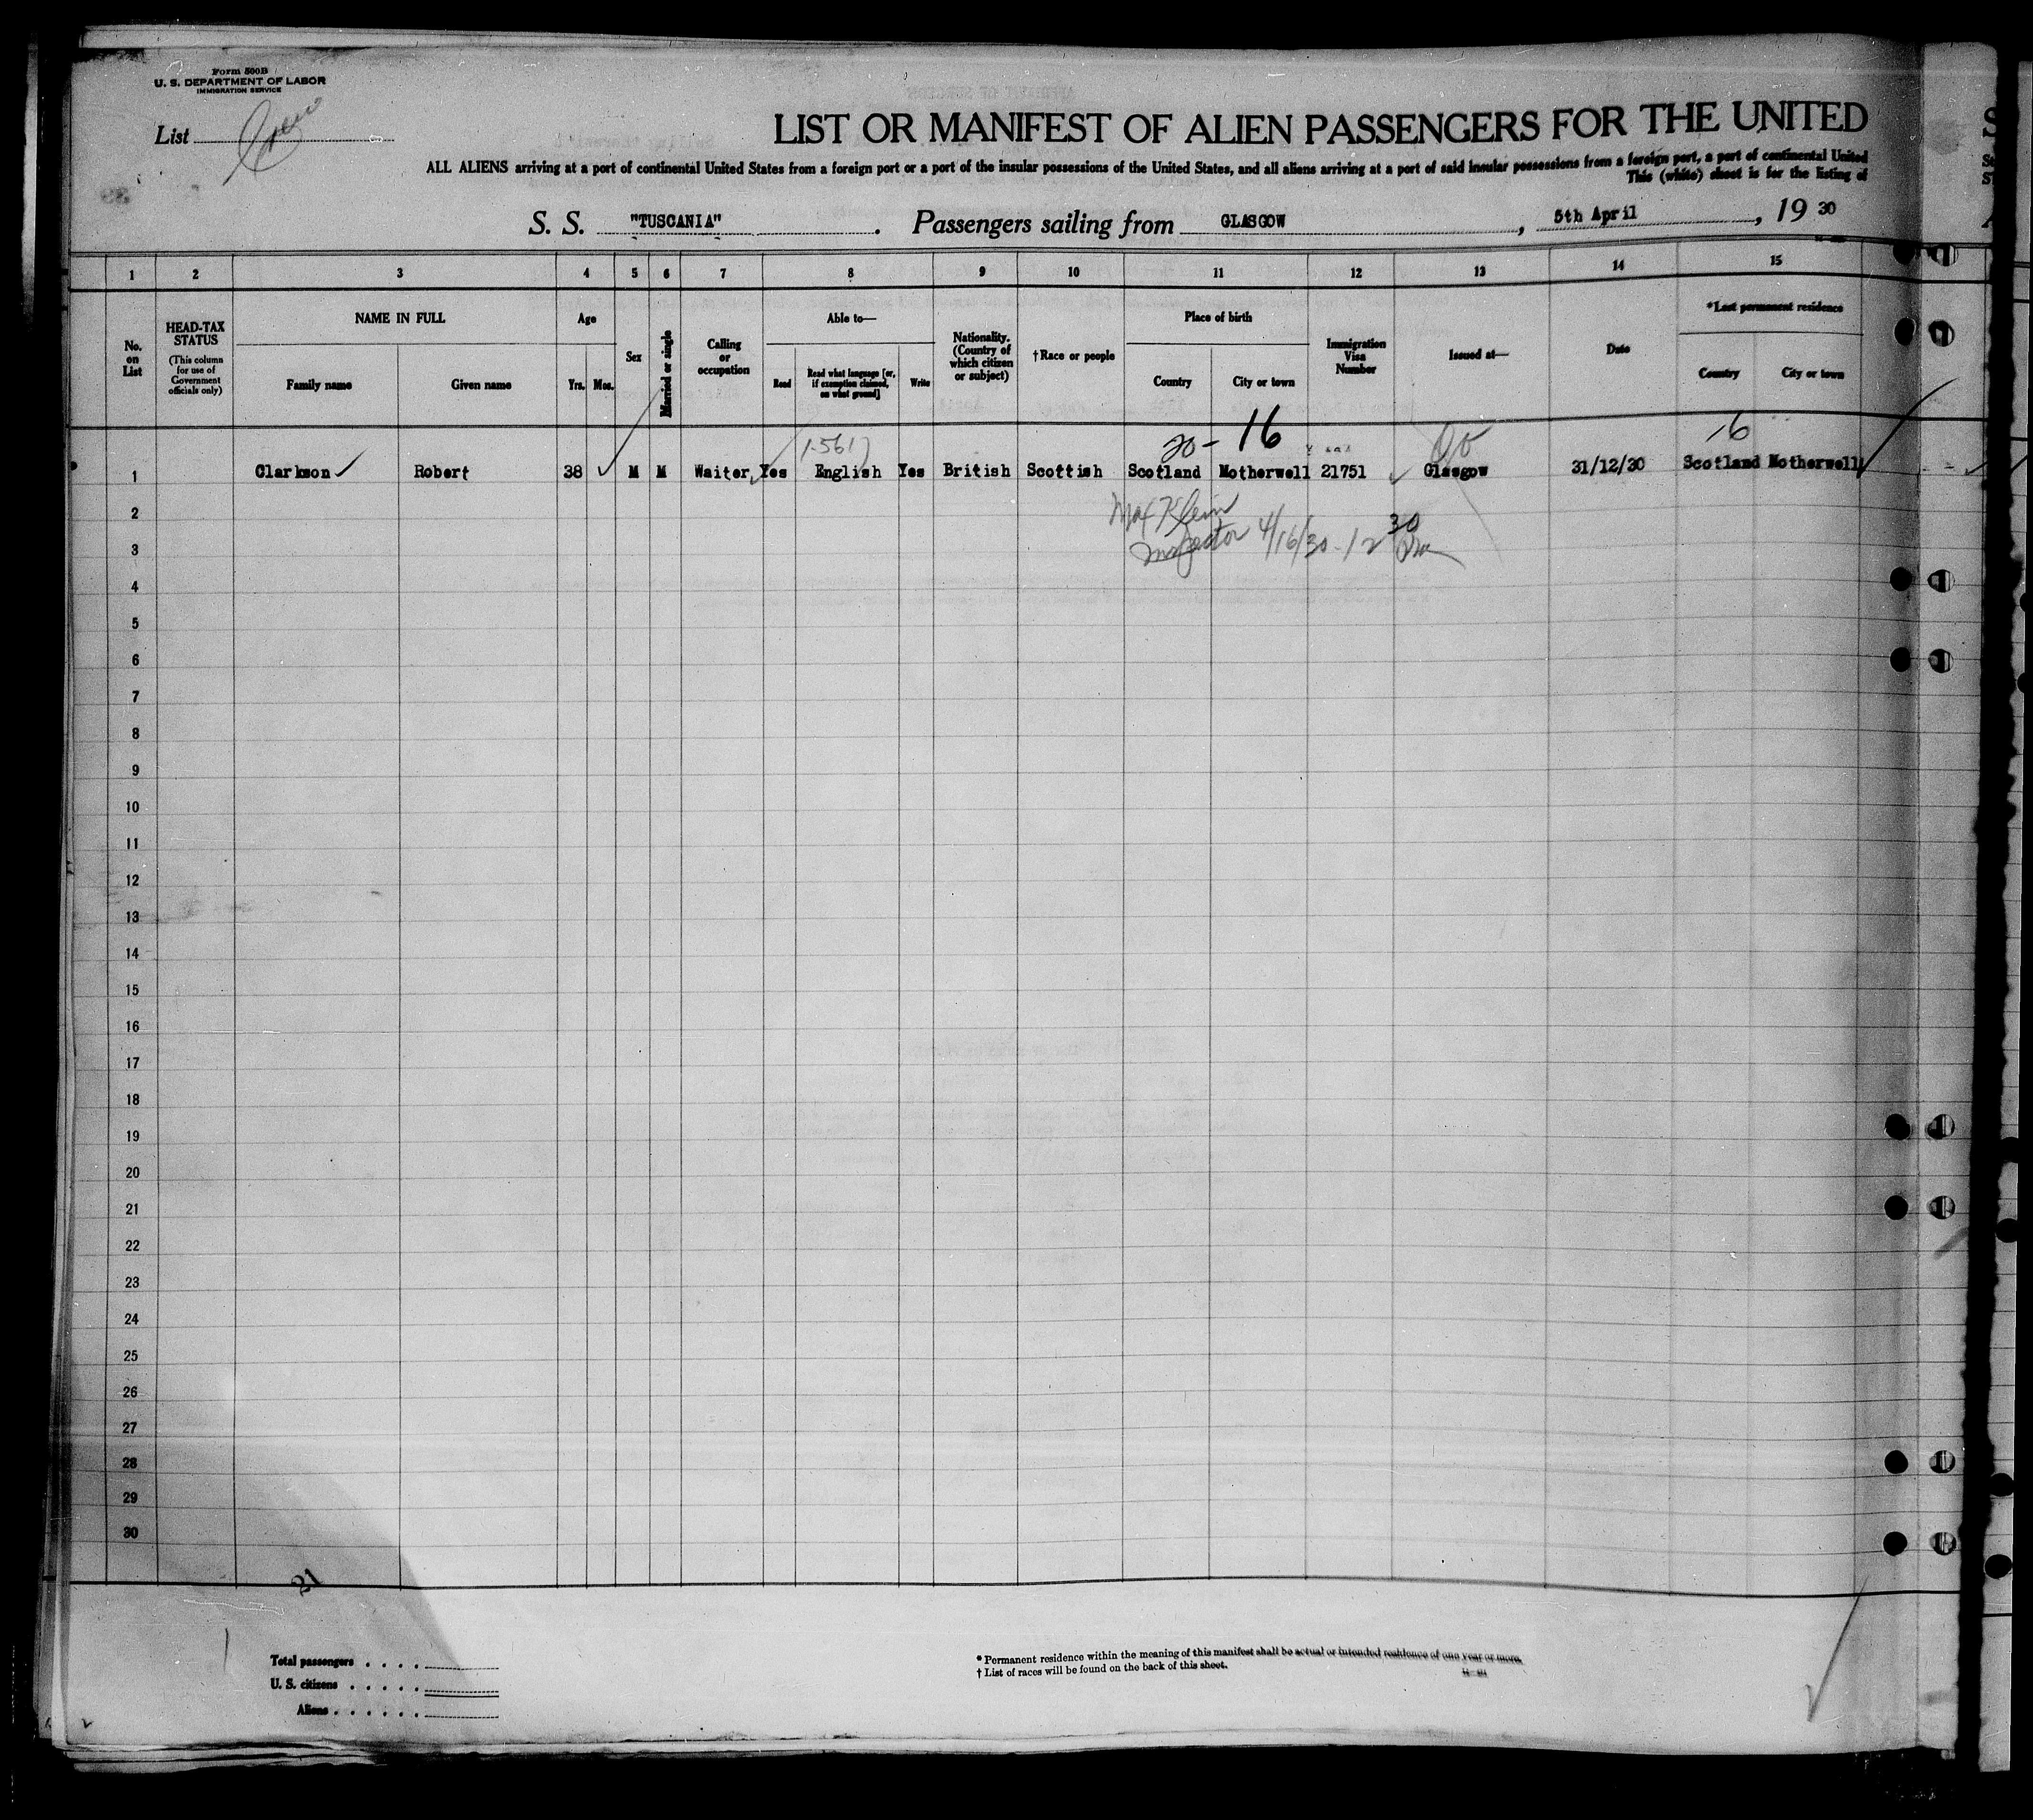 Form 500B
U. S. DEPARTMENT OF LABOR
IMMIGRATION SERVICE
List Crew
LIST OR MANIFEST OF ALIEN PASSENGERS FOR THE UNITED
ALL ALIENS arriving at a port of continental United States from a foreign port or a port of the insular possessions of the United States, and all aliens arriving at a port of said insular possessions from a foreign port, a port of continental United
This (white) sheet is for the listing of
S. S. "TUSCANIA". Passengers sailing from GLASGOW, 5th April, 19 30
1 2 3 4 5 6 7 8 9 10 11 12 13 14 15
No. on List
HEAD-TAX STATUS
(This column for use of Government officials only)
NAME IN FULL
Family name
Given name
Age
Yrs. Mos.
Sex
Married or single
Calling or occupation
Able to—
Read
Read what language [or, if exemption claimed, on what ground]
Write
Nationality. (Country of which citizen or subject)
†Race or people
Place of birth
Country
City or town
Immigration Visa Number
Issued at—
Date
*Last permanent residence
Country
City or town
20- 16 16
1 Clarkson Robert 38 M M Waiter Yes English Yes British Scottish Scotland Motherwell 21751 Glasgow 31/12/30 Scotland Motherwell
Max Klein
Inspector 4/16/30 - 12 30 Pm
2
3
4
5
6
7
8
9
10
11
12
13
14
15
16
17
18
19
20
21
22
23
24
25
26
27
28
29
30
21
Total passengers . . . .
U. S. citizens . . . . .
Aliens . . . . . .
* Permanent residence within the meaning of this manifest shall be actual or intended residence of one year or more.
† List of races will be found on the back of this sheet.